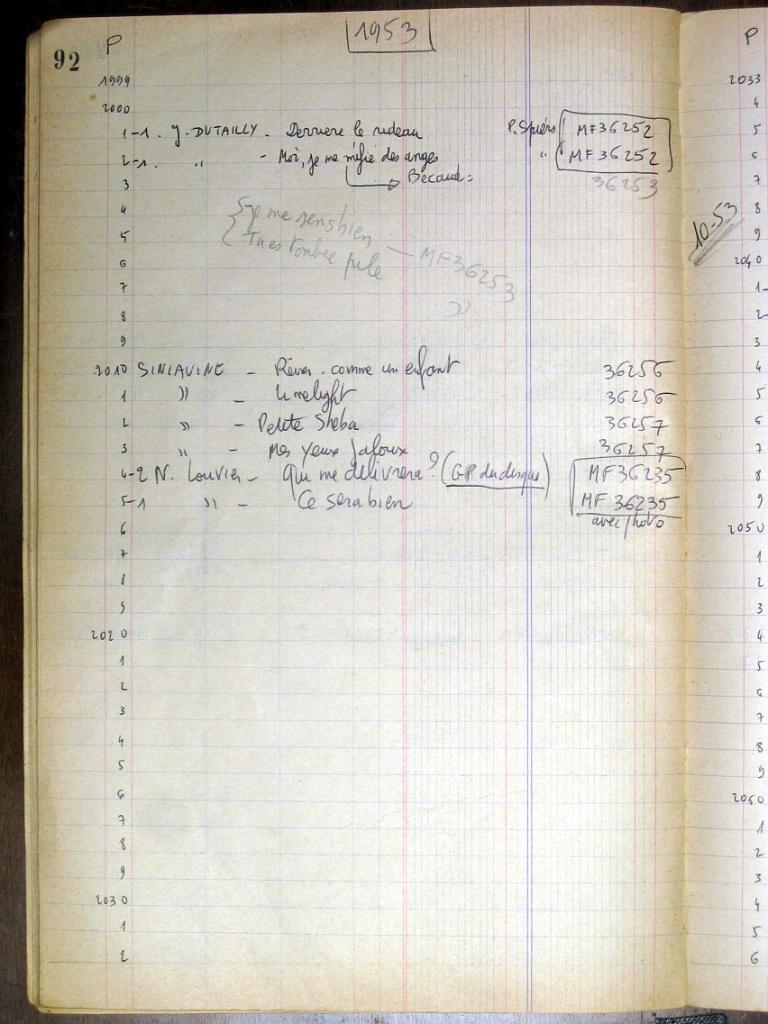 92 P 1953 P
1999
2000
1-1. J. DUTAILLY. Derriere le rideau P. Spiers MF36252
2-1. " - Moi, je me méfie des anges " MF36252
3 Becaud: 36253
4 Je me sens bien
5 Tu es tombée pile — MF36253
6 "
7
8
9
2010 SINIAVINE - Rêver comme un enfant 36256
1 " - Limelight 36256
2 " - Petite Sheba 36257
3 " - Mes yeux jaloux 36257
4-2 N. Louvier - Qui me délivrera? (GP du disque) MF36235
5-1 " - Ce sera bien MF 36235
6 avec photo
7
8
9
2020
1
2
3
4
5
6
7
8
9
2030
1
2
2033
4
5
6
7
8
10-53
9
2040
1-
2-
3
4
5
6
7
8
9
2050
1
2
3
4
5
6
7
8
9
2060
1
2
3
4
5
6